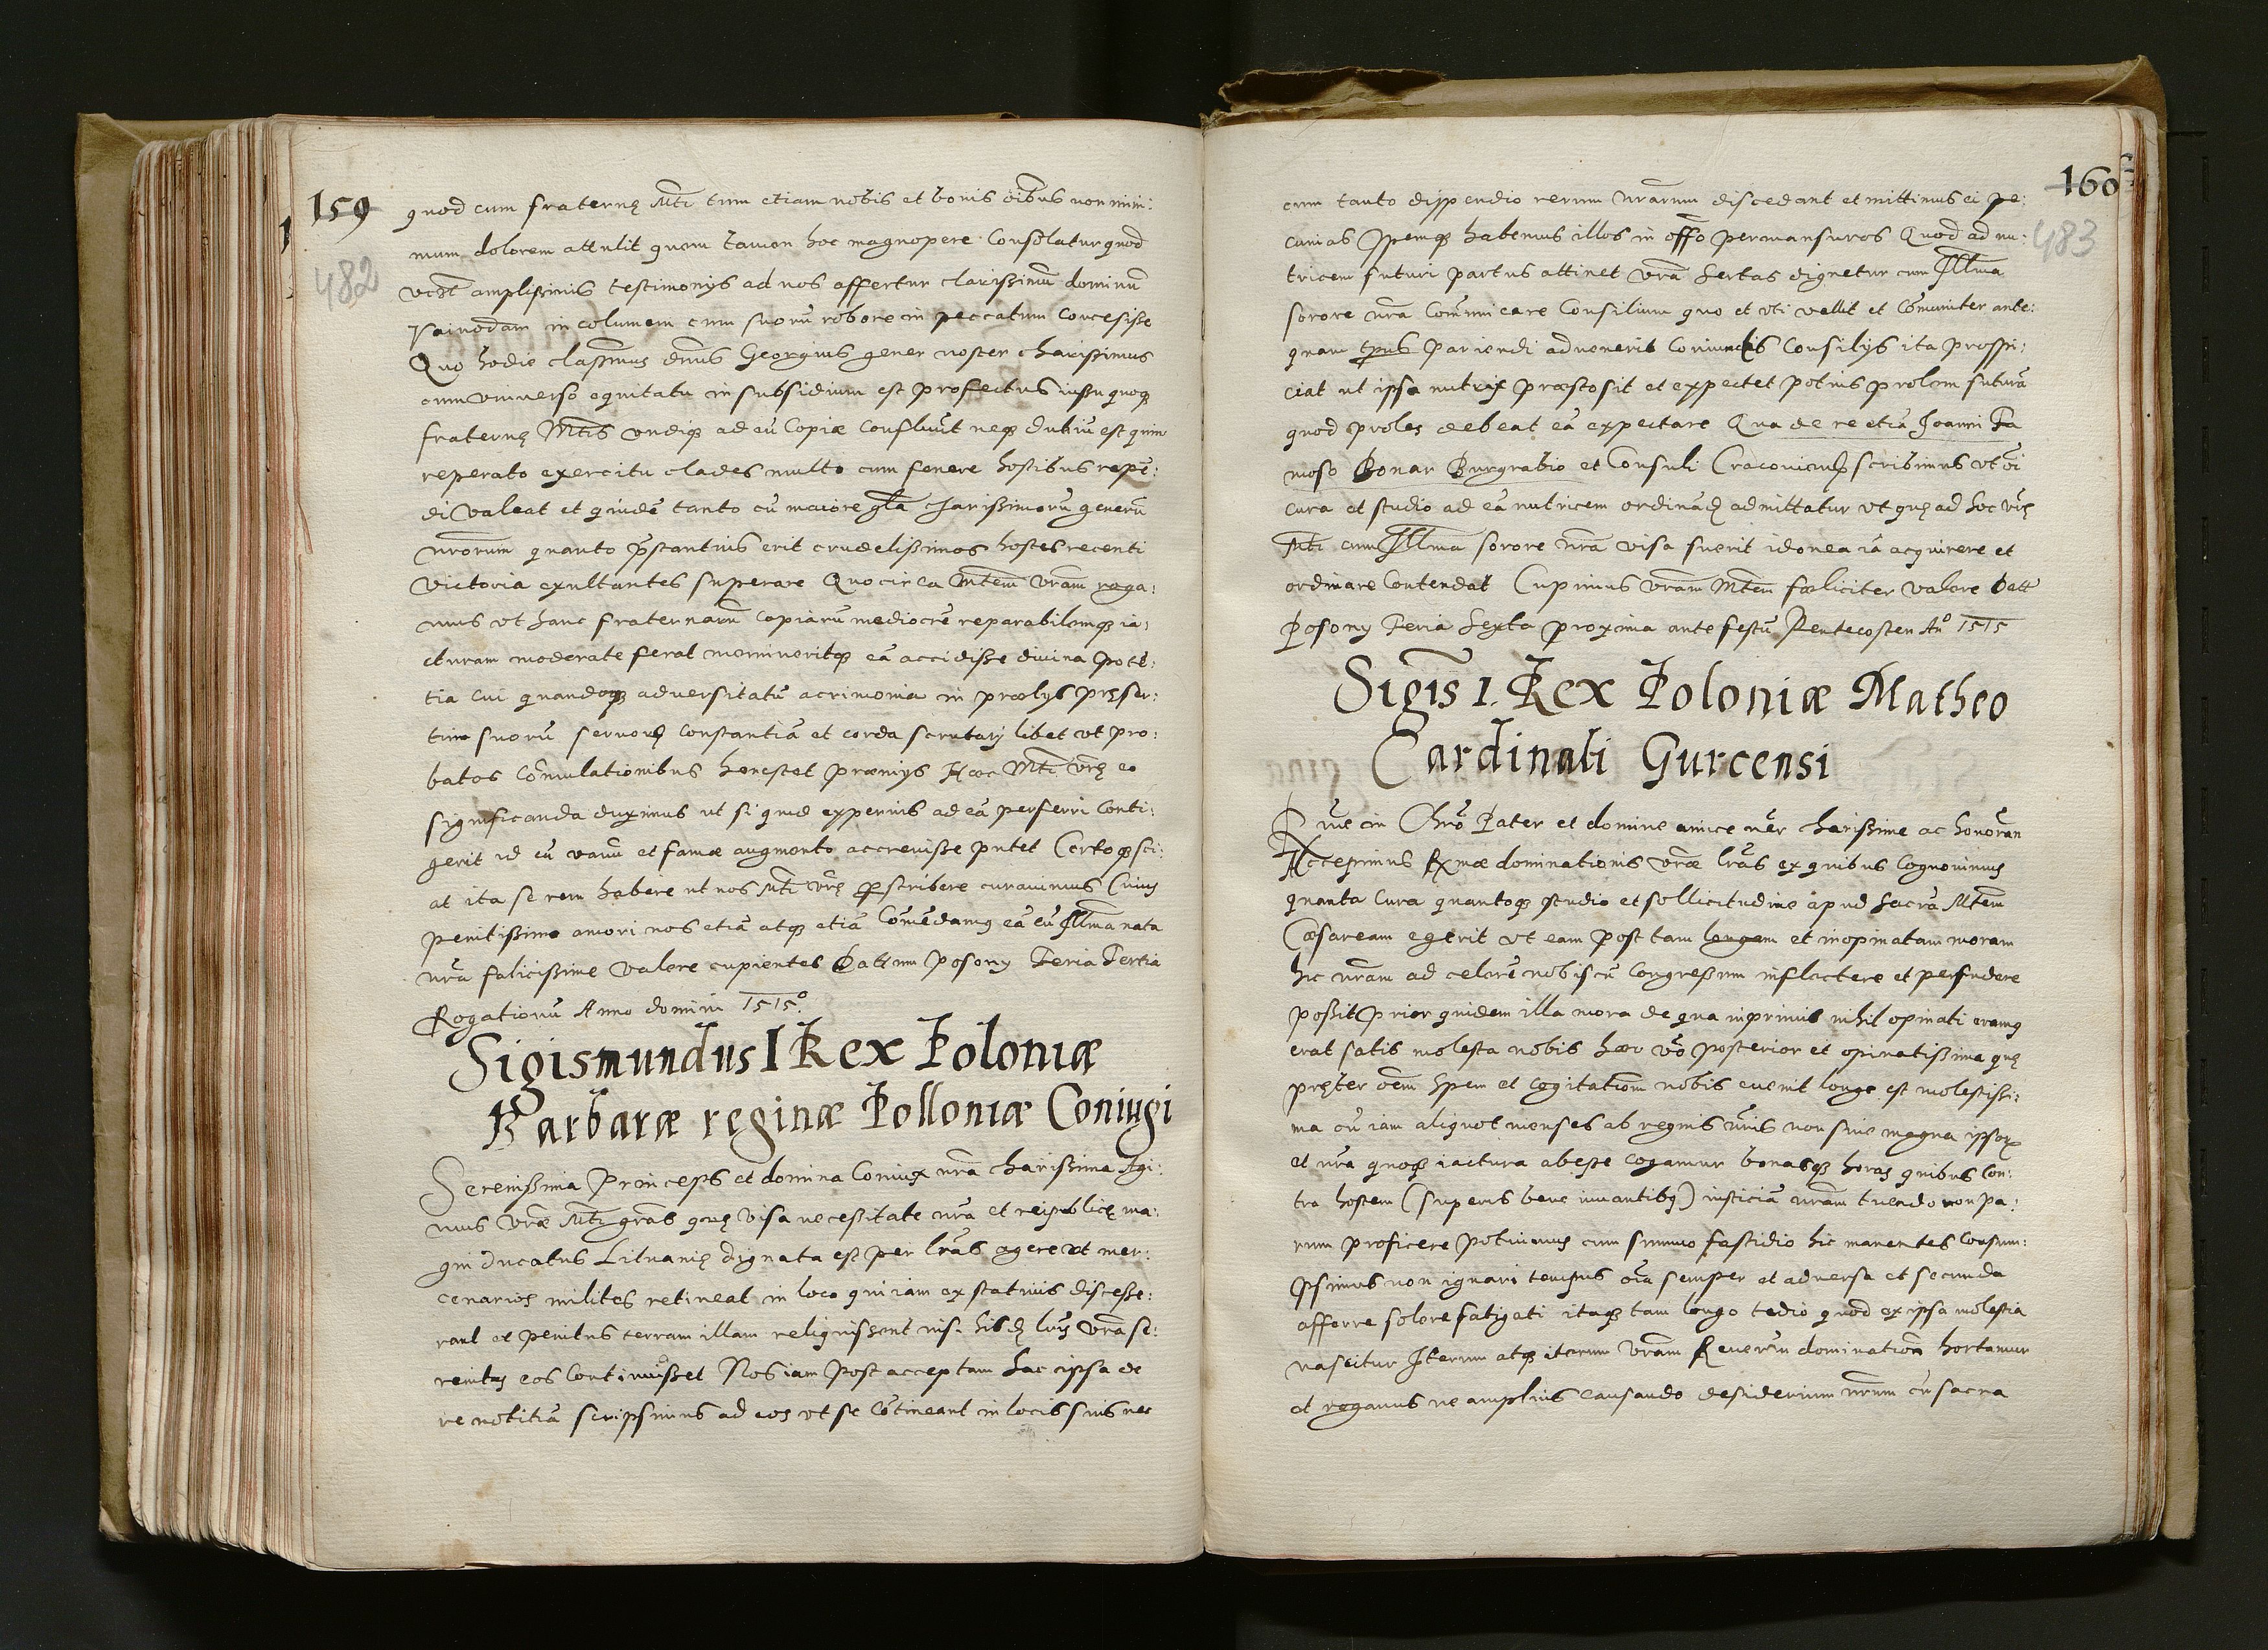 159
482
quod cum fraternę Mti tum etiam nobis et bonis oībus non mini:
mum dolorem attulit quem tamen hoc magnopere Consolatur quod
amplissimis testimonijs ad nos affertur clarissimū dominū
Vaiuodam in columem cum suorū robore in peccatum Concessisse
Quo hodie dnus Georgius gener noster charissimus
cum vniuerso equitatu in subsidium est profectus iussu quoqʒ
fraternę Mtis vndiqʒ ad eū Copiæ Confluūt neqʒ dubiū est quin
reperato exercitu clades multo cum fenere hostibus repē:
di Valeat et quidē tanto cū maiore gla charissimorū generū
nrorum quanto pstantius erit crudelissimos hostes recenti
victoria exultantes superare Quo circa Mtem vram roga:
mus vt hanc fraternarū copiarū mediocrē reparabilemqʒ ia:
cturam moderate ferat memineritqʒ eā accidisse diuina potē:
tia cui quandoqʒ aduersitatū acrimonia in prælijs pręser:
tim suorū seruorū Constantiā et corda scrutarj libet vt pro:
batos Comulationibus honestet præmijs Hæc Mti vrę eo
significanda duximus ut si quid ad eā perferri Conti:
gerit id eū vanū et famæ augmento accreuisse putet Certoqʒ sci:
at ita se rem habere ut nos Mti vrę pscribere curauimus Cuius
penitissimo amori nos etiā atqʒ etiā Comēdamus eā cū Illma nata
nrā fælicissime valere cupientes Datum Posony Feria Tertia
Rogationū Anno domini 1515°.
Sigismundus I Rex Poloniæ
Barbaræ reginæ Polloniæ Coniugi
Serenissima Princeps et domina Coniux nrā charissima Agi:
mus vræ Mti grās quę visa necessitate nrā et reipublicę ma:
gni Ducatus Lituanię dignata est per lrās agere vt mer:
cenarios milites retineat in loco qui iam ex statiuis discesse:
rant et penitus terram illam reliquissent nisi vra se:
renitas eos Continuisset Nos iam post acceptam hac ipsa de
re notitiā scripsimus ad eos vt se cōtineant in locis suis nec
160
483
cum tanto dispendio rerum nrarum discedant et mittimus ei pe:
cunias spemqʒ habemus illos in offo permansuros Quod ad nu:
tricem futuri partus attinet vra Sertas dignetur cum Illma
sorore nra Communicare Consilium quo et vti vellit et Comuniter ante:
quam tpus Pariendi aduenerit Coniunctis Consilijs ita prospi:
ciat ut ipsa nutrix præsto sit et expectet potius prolem futurā
quod proles debeat eā expectare Qua de re etiā Joanni Fa
moso Bonar Burgrabio et Consuli scribimus vt oī
cura et studio ad eā nutricem ordinādā admittatur vt quę ad hoc vrę
Mti cum Illma sorore nra visa fuerit idonea iā acquirere et
ordinare Contendat Cupimus vram Mtem fæliciter valere Datt
Posony Feria Sexta proxima ante festū Pentecosten An° 1515
Sigis 1. Rex Poloniæ Matheo
Cardinali Gurcensi
Rme in Chrō Pater et domine amice nēr charissime ac honorān
Accepimus Rxmæ dominationis vræ lrās ex quibus Cognouimus
quanta Cura quantoqʒ studio et sollicitudine apud Sacrā Mtem
Cæsaream egerit vt eam post tam longam et inopinatam moram
hic nram ad celerē nobiscū Congressum inflectere et persudere
possit Prior quidem illa mora de qua inprimis nihil opinati eramus
erat satis molesta nobis hæc vo posterior et opinatissima quę
pręter oem spem et cogitationem nobis euenit longe est molestissi:
ma cū iam aliquot menses ab regnis nris non sine magna ipsorum
et nra quoqʒ iactura abesse cogamur bonasqʒ horas quibus con:
tra hostem (superis bene iuuantibus) iusticiā nram tuendo non pa:
rum proficere potuimus cum summo fastidio hic manentes Consum:
psimus non ignari tempus oia semper et aduersa et secunda
afferre solere fatigati itaqʒ tam longo tedio quod ex ipsa molestia
nascitur Iterum atqʒ iterum vram dominationem hortamur
et rogamus ne amplius causando desiderium nrum cū sacra